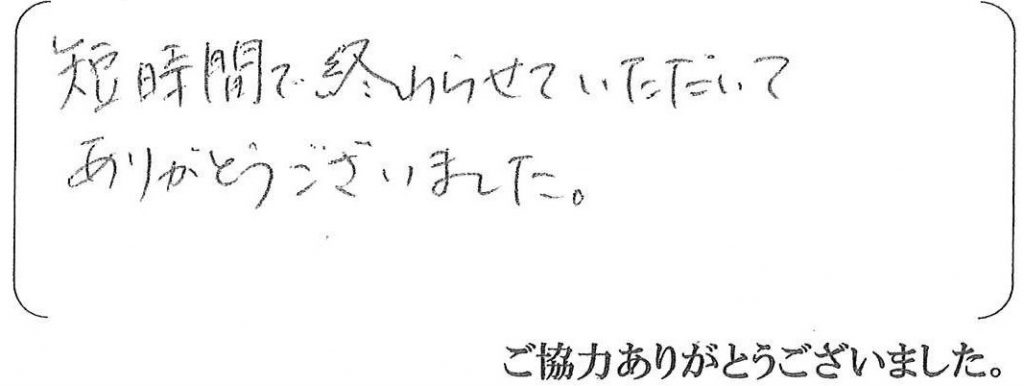 短時間で終わらせていただいて
ありがとうございました。
ご協力ありがとうございました。